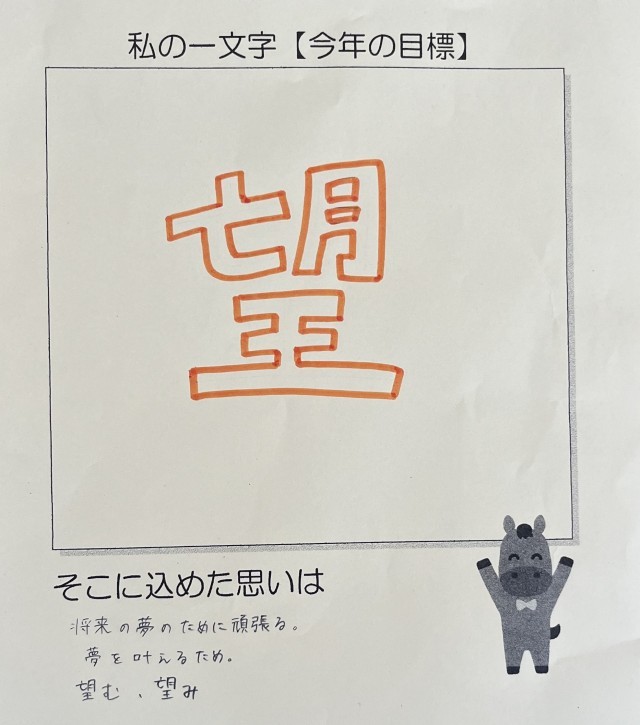 私の一文字【今年の目標】
望
そこに込めた思いは
将来の夢のために頑張る。
夢を叶えるため。
望む、望み